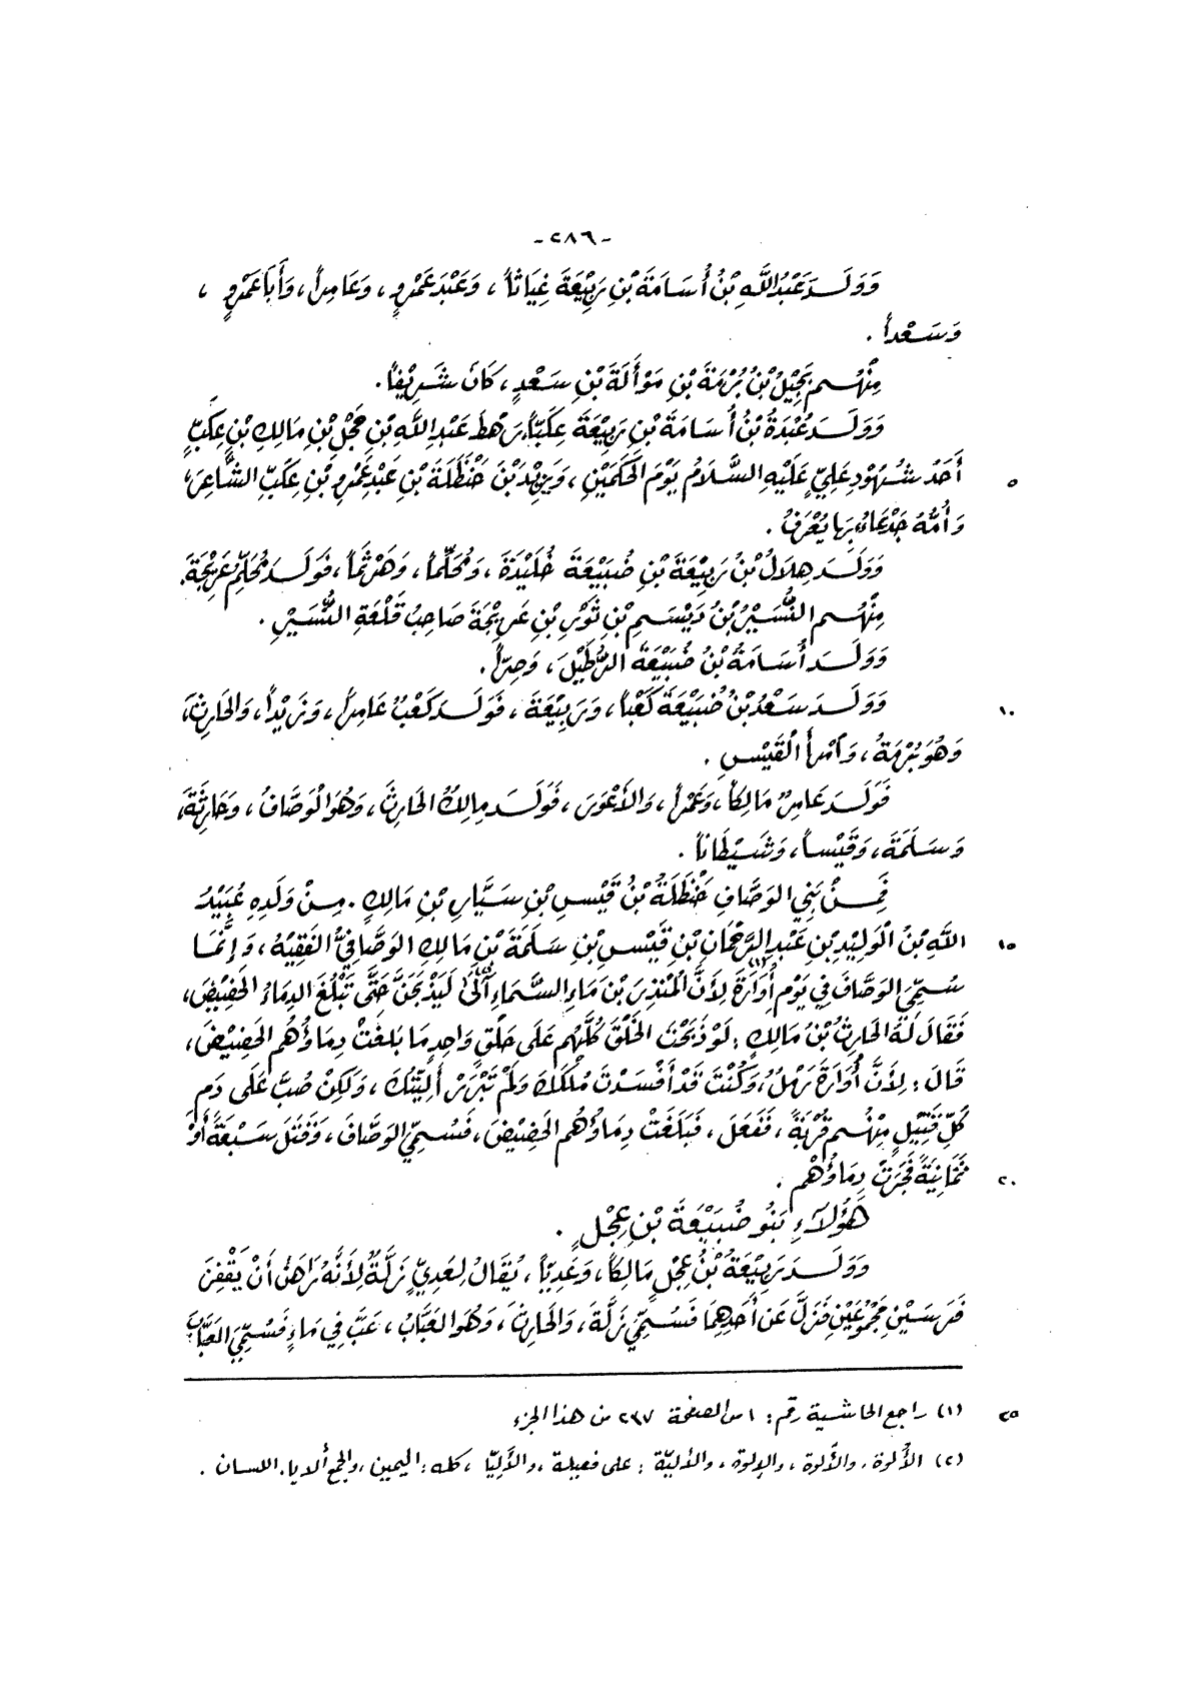 -٢٨٦-
وَوَلَدَ عَبْدُاللَّهِ بْنُ أُسَامَةَ بْنِ رَبِيْعَةَ غِيَاثاً، وَعَبْدَ عَمْرٍو، وَعَامِراً، وَأَبَا عَمْرٍو،
وَسَعْداً.
مِنْهُم بَجِيْلُ بْنُ بُرْمَةَ بْنِ مَوْأَلَةَ بْنِ سَعْدٍ، كَانَ شَرِيْفاً.
وَوَلَدَ عُبَدَةُ بْنُ أُسَامَةَ بْنِ رَبِيْعَةَ عِكَبّاً، رَهْطَ عَبْدِ اللَّهِ بْنِ حَجْلِ بْنِ مَالِكِ بْنِ عِكَبٍّ
٥ أَحَدُ شُهُوْدِ عَلِيٍّ عَلَيْهِ السَّلَامُ يَوْمَ الحَكَمَيْنِ، وَيَزِيْدَ بْنَ حَنْظَلَةَ بْنِ عَبْدِ عَمْرِو بْنِ عِكَبٍّ الشَّاعِرَ،
وَأُمُّهُ جَدْعَاءُ بِهَا يُعْرَفُ.
وَوَلَدَ هِلَالُ بْنُ رَبِيْعَةَ بْنِ ضُبَيْعَةَ خُلَيْدَةَ، وَمُحَلِّماً، وَهَرْثَماً، فَوَلَدَ مُحَلِّمٌ عَرِيْجَةَ.
مِنْهُم النُّسَيْرُ بْنُ دَيْسَمِ بْنِ ثَوْرِ بْنِ عَرِيْجَةَ صَاحِبُ قَلْعَةِ النُّسَيْرِ.
وَوَلَدَ أُسَامَةُ بْنُ ضُبَيْعَةَ الرُّطَيْلَ، وَصِرّاً.
١٠ وَوَلَدَ سَعْدُ بْنُ ضُبَيْعَةَ كَعْباً، وَرَبِيْعَةَ، فَوَلَدَ كَعْبٌ عَامِراً، وَزَيْداً، وَالحَارِثَ،
وَهُوَ بُرْمَةُ، وَامْرأَ القَيْسِ.
فَوَلَدَ عَامِرٌ مَالِكاً، وَعَمْراً، وَالأَعْوَرَ، فَوَلَدَ مَالِكٌ الحَارِثَ، وَهُوَ الوَصَّافُ، وَحَارِثَةَ،
وَسَلَمَةَ، وَقَيْساً، وَشَيْطَاناً.
فَمِنْ بَنِي الوَصَّافِ حَنْظَلَةُ بْنُ قَيْسِ بْنِ سَيَّارِ بْنِ مَالِكٍ. مِنْ وَلَدِهِ عُبَيْدُ
١٥ اللَّهِ بْنُ الوَلِيْدِ بْنِ عَبْدِ الرَّحْمَانِ بْنِ قَيْسِ بْنِ سَلَمَةَ بْنِ مَالِكٍ الوَصَّافِيُّ الفَقِيْهُ، وَإِنَّمَا
سُمِّيَ الوَصَّافَ فِي يَوْمِ أُوَارَةَ (١) لِأَنَّ المُنْذِرَ بْنَ مَاءِ السَّمَاءِ آلَى (٢) لَيَذْبَحَنَّ حَتَّى تَبْلُغَ الدِمَاءُ الحَضِيْضَ،
فَقَالَ لَهُ الحَارِثُ بْنُ مَالِكٍ: لَوْ ذَبَحْتَ الخَلْقَ كُلَّهُم عَلَى حَلْقٍ وَاحِدٍ مَا بَلَغَتْ دِمَاؤُهُم الحَضِيْضَ،
قَالَ: لِأَنَّ أُوَارَةَ رَمْلٌ، وَكُنْتَ قَدْ أَفْسَدْتَ مُلْكَكَ وَلَمْ تَبْرَرْ أَلِيَّتُكَ، وَلَكِنْ صُبَّ عَلَى دَمِ
كُلِّ قَتِيْلٍ مِنْهُم قِرْبَةً، فَفَعَلَ، فَبَلَغَتْ دِمَاؤُهُم الحَضِيْضَ، فَسُمِّيَ الوَصَّافَ، وَقَتَلَ سَبْعَةً أَوْ
٢٠ ثَمَانِيَةً فَجَرَتْ دِمَاؤُهُم.
هَؤُلَاءِ بَنُو ضُبَيْعَةَ بْنِ عِجْلٍ.
وَوَلَدَ رَبِيْعَةُ بْنُ عِجْلٍ مَالِكاً، وَعَدِيّاً، يُقَالُ لِعَدِيٍّ نَزَلَّةُ لِأَنَّهُ رَاهَنَ أَنْ يَقْفِزَ
فَرَسَيْنِ مَجْمُوْعَيْنِ فَزَلَّ عَن أَحَدِهِمَا فَسُمِّيَ زَلَّةَ، وَالحَارِثَ، وَهُوَ العَبَّابُ، عَبَّ فِي مَاءٍ فَسُمِّيَ العَبَّابَ
٢٥ (١) راجع الحاشية رقم: ١ من الصفحة ٢٦٧ من هذا الجزء
(٢) الأُلوة، والأَلوة، والإلوة، والأليّة: على فعيلة، والأَلِيّا، كله: اليمين، والجمع ألايا. اللسان.